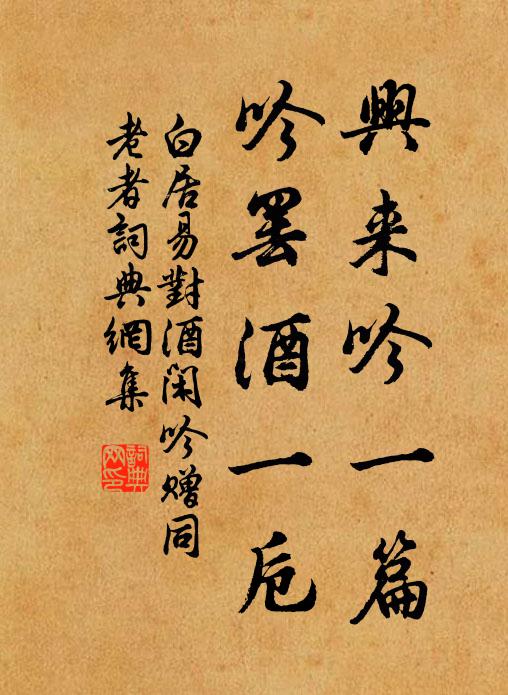 興来吟一篇
吟罷酒一卮
白居易對酒閑吟贈同
老者詞典網集
詞典網印